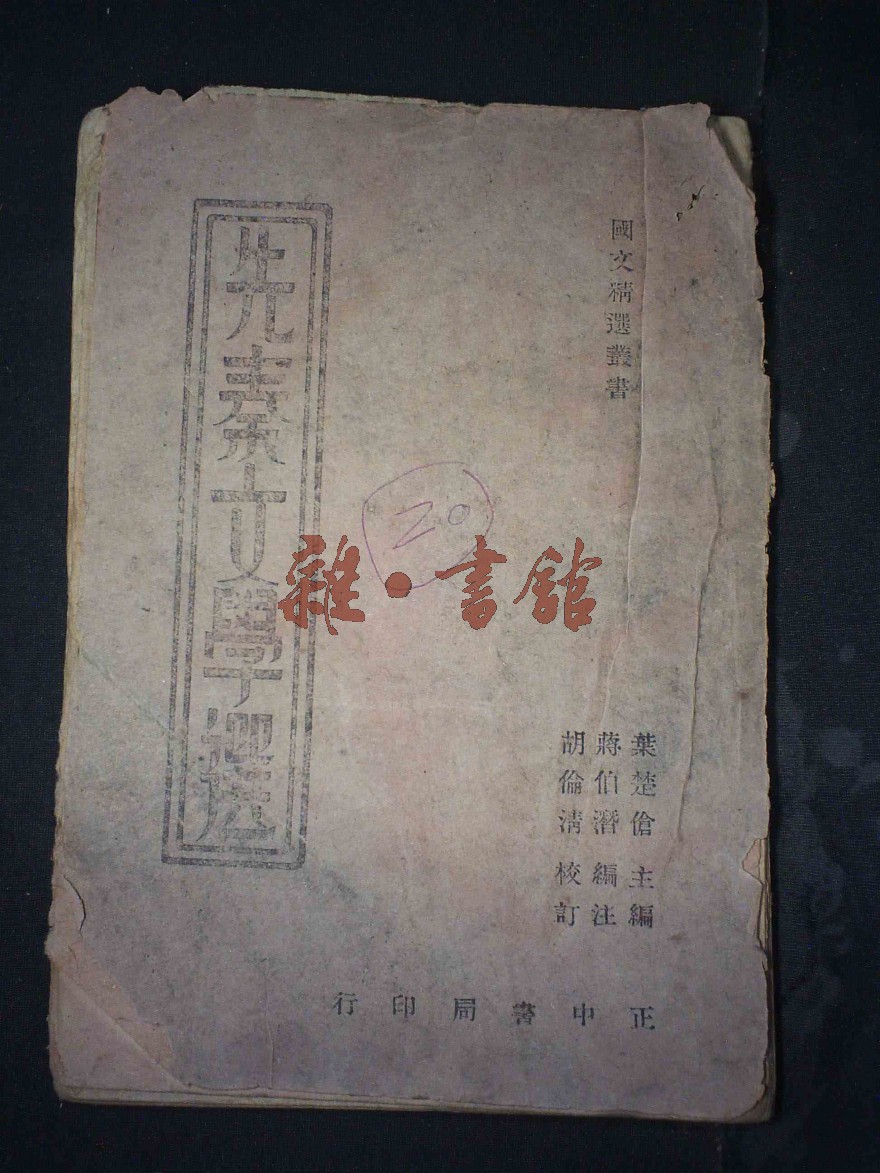 國文精選叢書
葉楚傖主編
蔣伯潛編注
胡倫清校訂
先秦文學選
正中書局印行
20
雜·書館